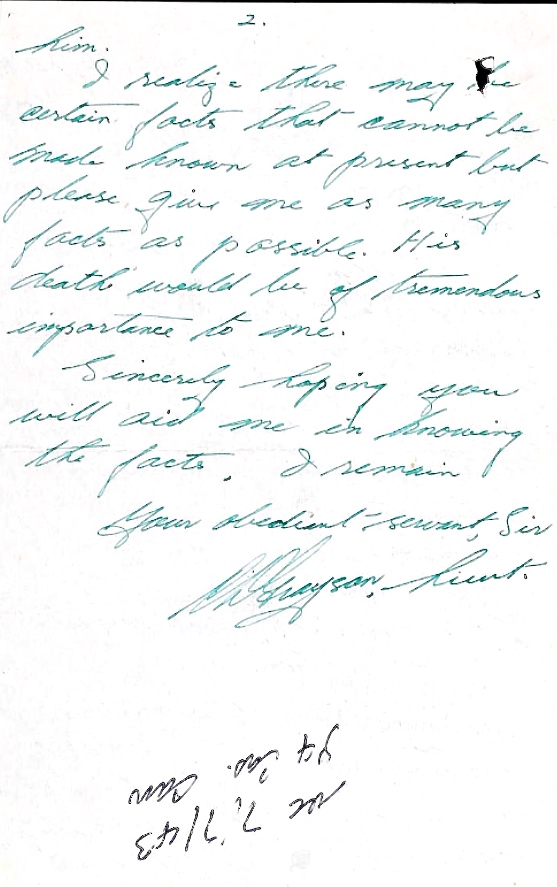 2.
him.
I realize there may be
certain facts that cannot be
made known at present but
please give me as many
facts as possible. His
death would be of tremendous
importance to me.
Sincerely hoping you
will aid me in knowing
the facts, I remain
Your obedient servant, Sir
Grayson, Lieut.
7/7/43